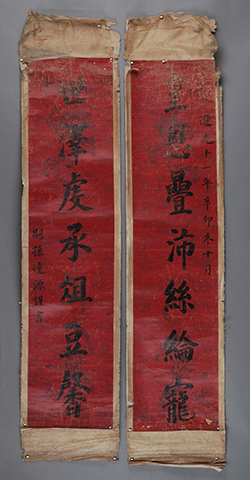 道光十一年辛卯末十月
皇恩疊沛絲綸寵
世澤虔承俎豆馨
嗣孫達源謹書